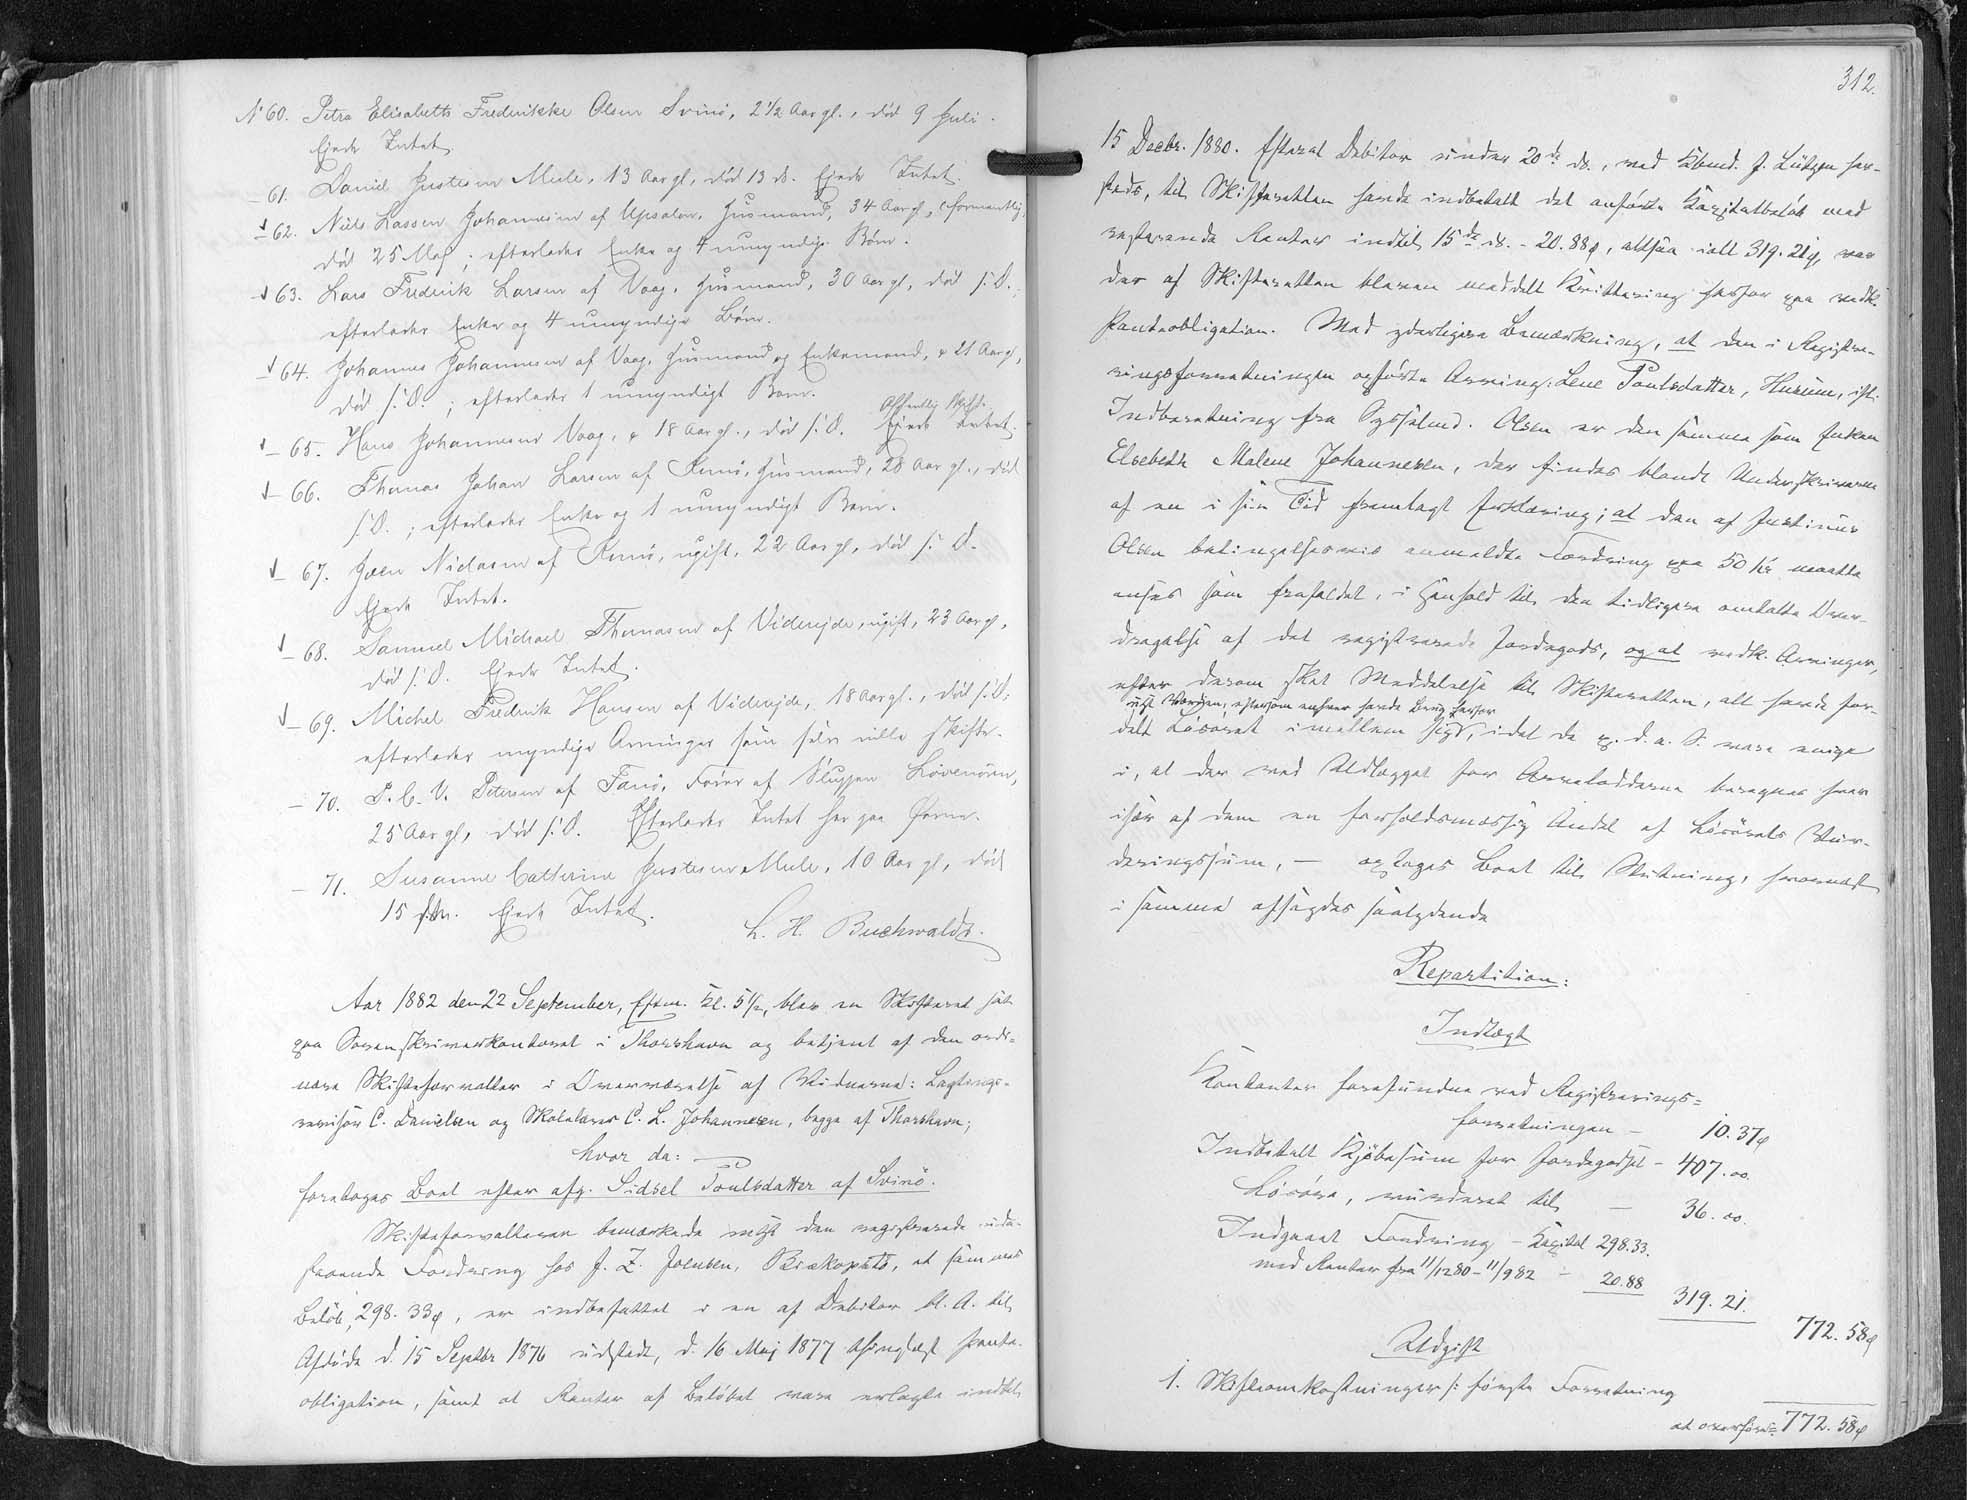 No 60. Petra Elisabeth Fredrikke Olsen Svinö, 2½ Aar gl., død 9 Juli.
Ejede Intet.
— 61. Daniel Justesen Mule, 13 Aar gl, død 13 ds. Ejede Intet.
— 62. Niels Lassen Johannesen af Upsalon, Huusmand, 34 Aar gl,
død 25 Maj; efterlader Enke og 4 umyndige Børn.
— 63. Lars Fredrik Larsen af Vaag, Huusmand, 30 Aar gl, død s. D.
efterlader Enke og 4 umyndige Børn.
— 64. Johannes Johannesen af Vaag, Huusmand og Enkemand, 21 Aar gl,
død s. D.; efterlader 1 umyndigt Barn.
Offentlig Skifte.
— 65. Hans Johannesen Vaag, 18 Aar gl., død s. D. Ejede Intet.
— 66. Thomas Johan Larsen af Kunö, Huusmand, 28 Aar gl., død
s. D.; efterlader Enke og 1 umyndigt Barn.
— 67. Joen Niclasen af Kunö, ugift, 22 Aar gl, død s. D.
Ejede Intet.
— 68. Samuel Michael Thomasen af Videreide, ugift, 23 Aar gl,
død s. D. Ejede Intet.
— 69. Michel Fredrik Hansen af Videreide, 18 Aar gl., død s. D.
efterlader myndige Arvinger som selv ville skifte.
— 70. P. C. V. Petersen af Fanö, Fører af Sluppen Lövenörn,
25 Aar gl, død s. D. Efterlader Intet her paa Færøe.
— 71. Susanne Cathrine Justesen Mule, 10 Aar gl, død
15 Ejede Intet.
L. H. Buchwaldt.
Aar 1882 den 22 September, Efterm. Kl. 5½, blev en Skifteret sat
paa Sorenskriverkontoret i Thorshavn og betjent af den ordi-
nære Skifteforvalter i Overværelse af Vidnerne: Lagtings-
revisor C. Danielsen og Skolelærer C. L. Johannesen, begge af Thorshavn;
hvor da:
foretoges Boet efter afg. Sidsel Poulsdatter af Svinö.
Skifteforvalteren bemærkede m. H. t. den registrerede ude-
staaende Fordring hos J. Z. Joensen, at sammes
Beløb, 298. 33 ø, er indbefattet i en af Debitor til A. til
Afdøde d. 15 Septbr 1876 udstedt, d. 16 Maj 1877 thinglæst Pante-
obligation, samt at Renter af Beløbet vare erlagte indtil
312.
15 Decbr. 1880. Efterat Debitor under 20de ds., ved Kbmd. J. Lützen her-
steds, til Skifteretten havde indbetalt det anførte Kapitalbeløb med
resterende Renter indtil 15de ds. - 20. 88 ø, altsaa ialt 319. 21 ø, var
der af Skifteretten bleven meddelt Kvittering herfor paa vedk.
Panteobligation. Med yderligere Bemærkning, at den i Registre-
ringsforretningen opførte Arving: Lene Poulsdatter, Husum, ifl.
Indberetning fra Sysselmd. Olsen er den samme som Enken
Elsebeth Malene Johannesen, der findes blandt Underskriverne
af en i sin Tid fremlagt Erklæring; at den af Justinus
Olsen betingelsesvis anmeldte Fordring paa 50 Kr maatte
anses som frafaldet, i Henhold til den tidligere omtalte Over-
dragelse af det registrerede Jordegods, og at vedk. Arvinger,
efter derom sket Meddelelse til Skifteretten, alt havde for-
eftersom enhver havde Brug herfor
delt Løsøret imellem sig, idet de p. d. a. S. vare enige
i, at der ved Udlægget for Arvelodderne beregnes hver
især af dem en forholdsmæssig Andel af Løsørets Vur-
deringssum, — optoges Boet til Slutning, hvornæst
i samme afsagdes saalydende
Repartition:
Indtægt
Kontanter forefundne ved Registrerings=
forretningen — 10. 37 ø
Indbetalt Kjøbesum for Jordegodset - 407. 00.
Løsøre, vurderet til — 36. 00.
Indgaaet Fordring - Kapital 298.33.
med Renter fra 11/12 80 - 11/9 82 - 20.88
319. 21.
772. 58 ø
Udgift
1. Skifteomkostninger første Forretning
at overføre = 772. 58 ø